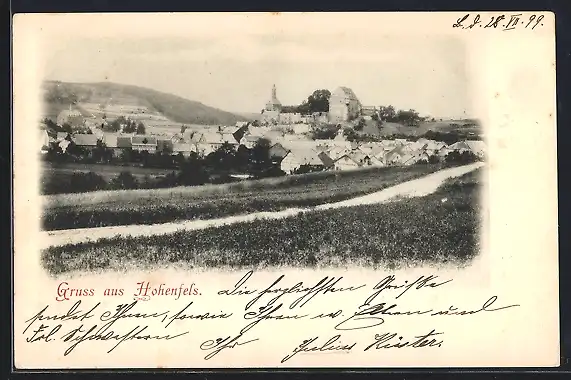 L. d. 28. VII. 99.
Gruss aus Hohenfels.
die herzlichsten Grüße
sendet Ihnen, sowie Ihren w. Eltern und
Frl. Schwestern Ihr Julius Küster.